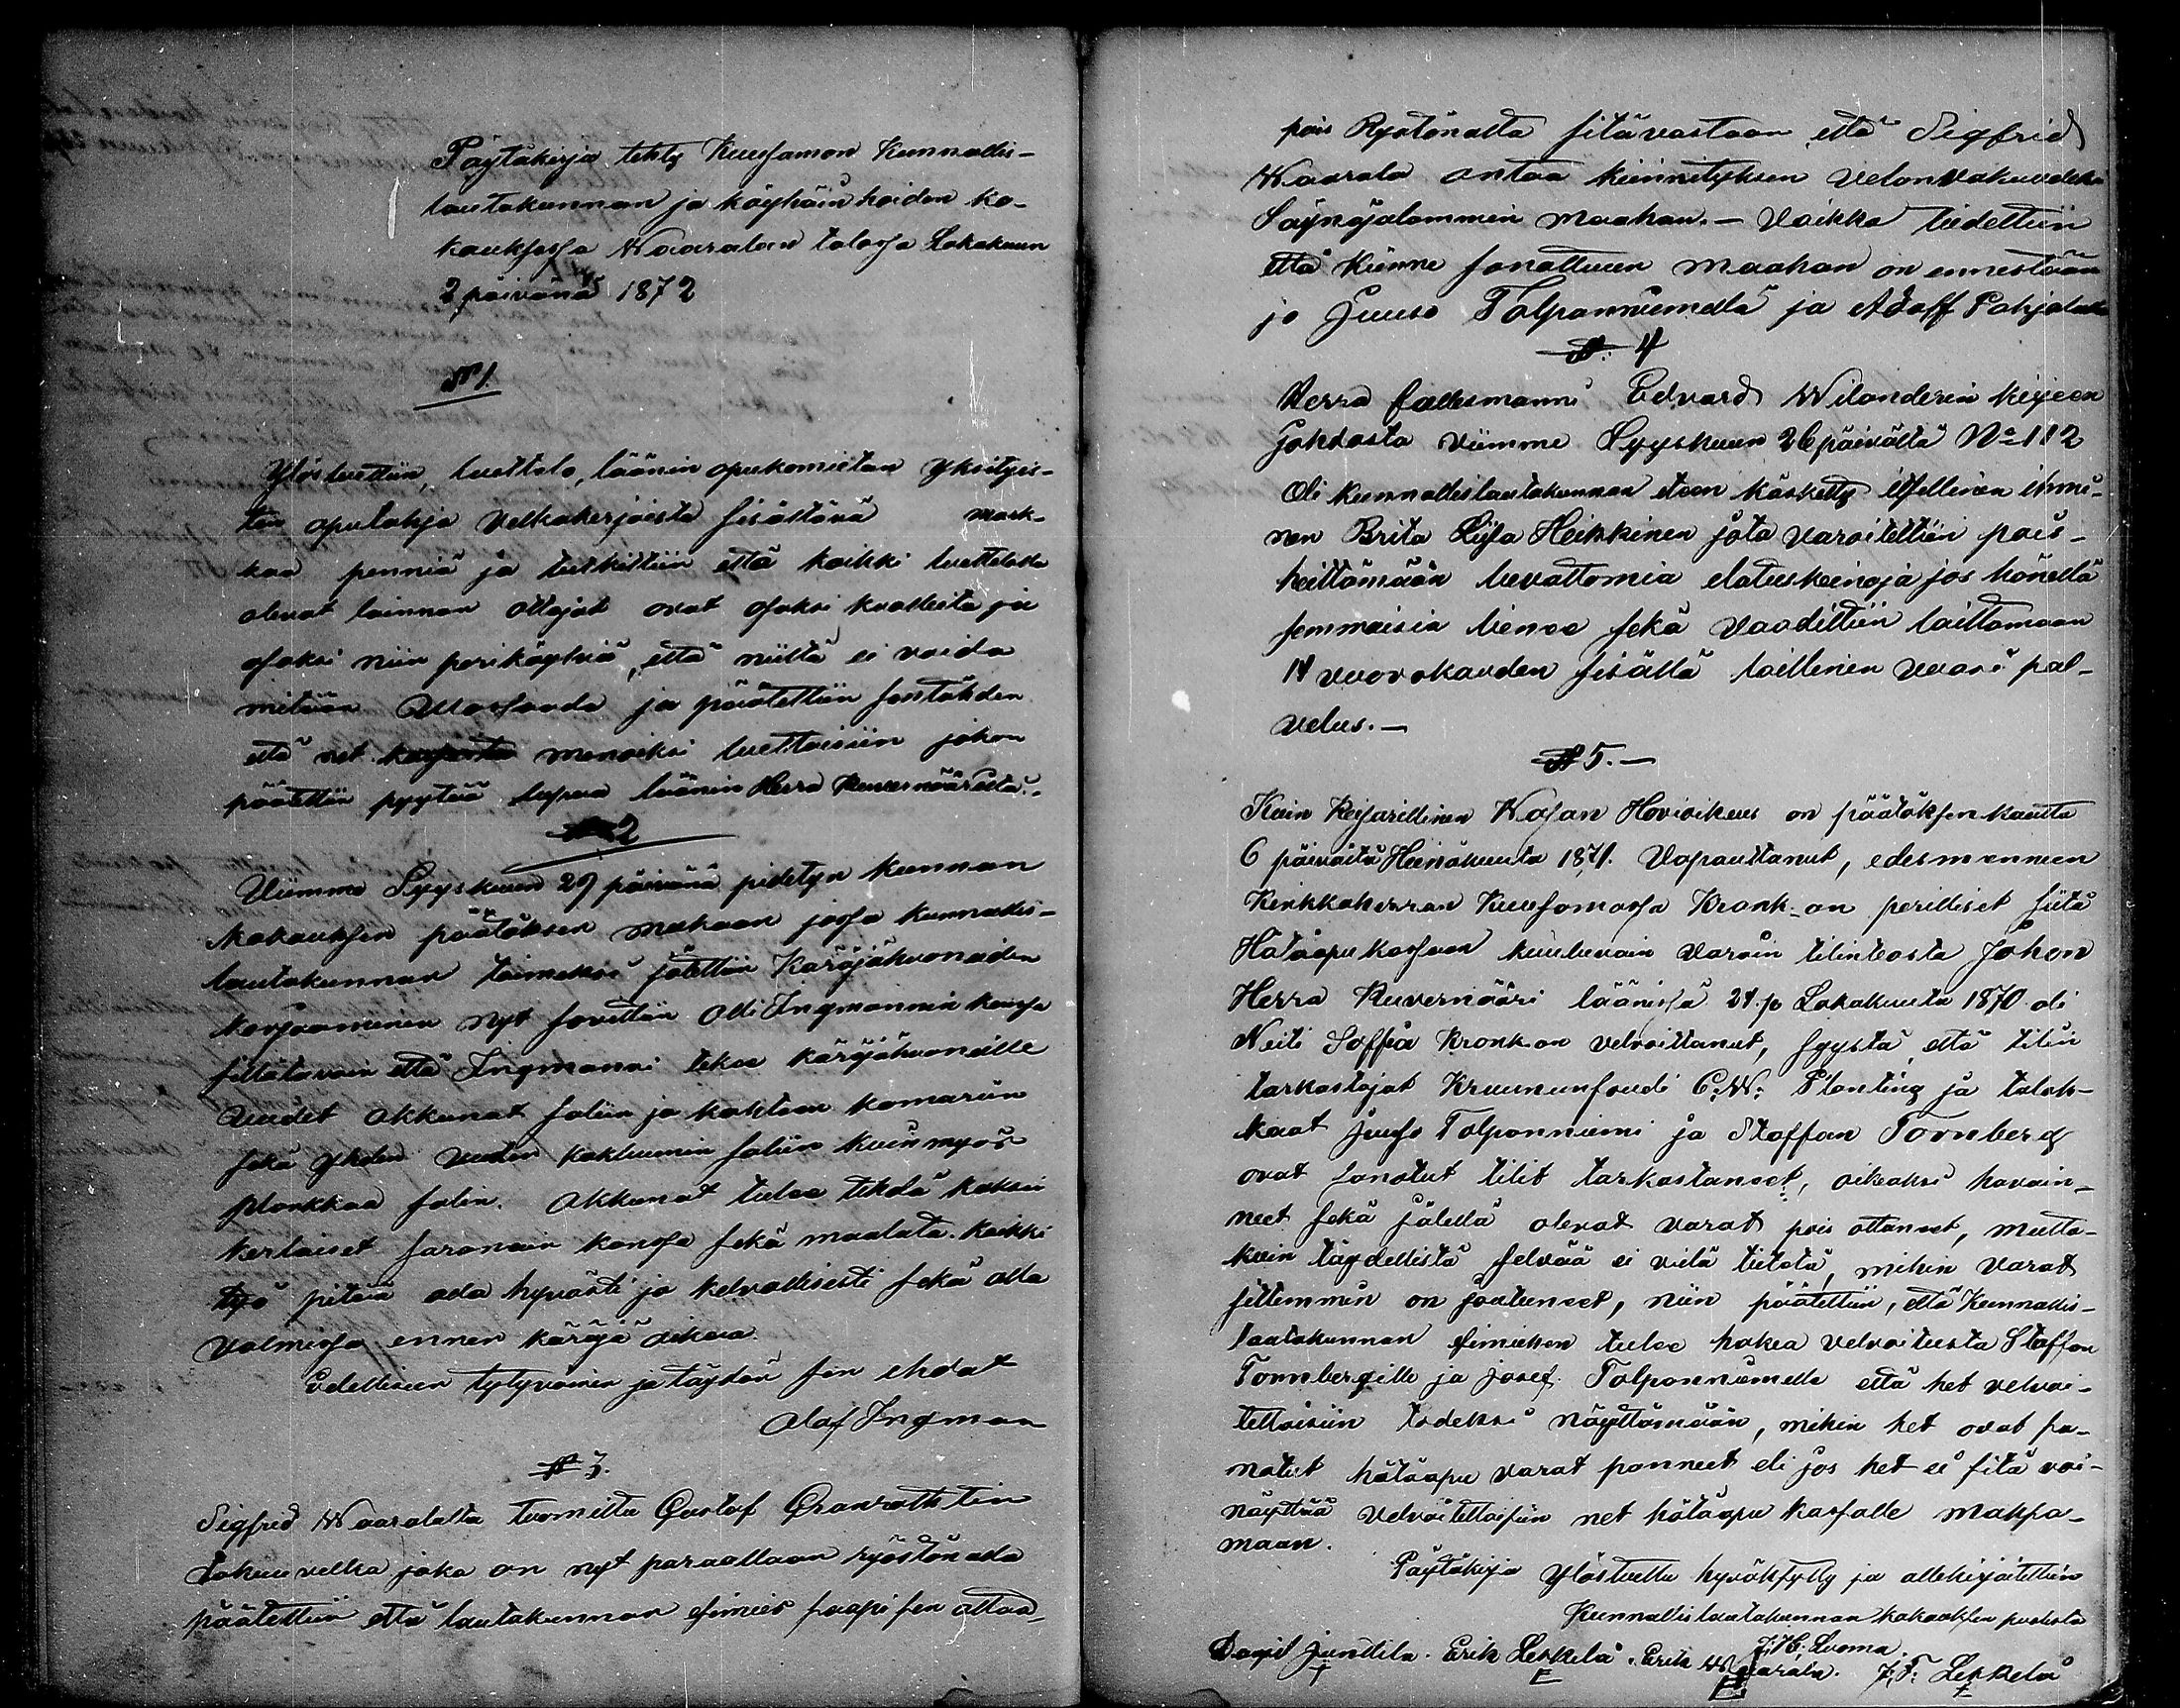 Pöytäkirja tehty Kuusamon Kunnallis-
lautakunnan ja köyhäin hoidon ko-
kouksessa Waaralan talossa Lokakuun
2 päivänä 1872
N 1.
Ylösluettiin, luettelo, läänin apukomitean Yksityis-
ten apulahja Velkakirjoista sisältävä mark-
kaa penniä ja tutkittiin että kaikki luettelossa
olevat lainnan ottajat ovat osaksi kuolleita ja
osaksi niin periköyhiä, että niiltä ei voida
mitään Ulosfaada ja päätettiin sentähden
että net menoiksi luettaisiin johon
päätettiin pyytää lupaa läänin Herra Kuvernööriltä.
N 2
Viimme Syyskuun 29 päivänä pidetyn kunnan
Kokouksen päätöksen mukaan jossa kunnallis-
lautakunnan toimeksi jätettiin Käräjähuoneiden
korjaaminen nyt sovittiin Olli Ingmannin kanssa
sillätavoin että Ingmanni tekee käräjähuoneille
Uudet akkunat saliin ja kahteen kamariin
sekä yhden uuden kakluunin saliin kuin myös
plankkaa salin. Akkunat tulee tehdä kaksin
kertaiset saranain kanssa sekä maalata. kaikki
työ pitää olla hyvästi ja kelvollisesti sekä olla
valmiissa ennen käräjä aikaa.
Edelliseen tytyväinen ja täytän sen ehdat
Olof Ingman
N 3.
Sigfred Waaralalta tuomittu Gustaf Granrothtin
takuuvelka joka on nyt paraallaan ryöstönalla
päätettiin että lautakunnan esimies saapi sen ottaa
pois Ryöstönalta sitävastaan että Sigfrid
Waarala antaa kiinnityksen velanvakuudeksi
Säynäjälammin maahan. — Vaikka tiedettiin
että kiinne sanottuun maahan on ennestään
jo Juuso Tolpanniemellä ja Adolf Pohjolalla
N: 4
Herra falesmanni Edvard Wilanderin kirjeen
johdosta viimme Syyskuun 26 päivältä No 112
Oli kunnallislautakunnan eteen käsketty itsellinen ihmi-
nen Brita Liisa Heikkinen jota varoitettiin pois-
heittämään luvattomia elatuskeinoja jos hänellä
semmoisia lienee sekä Vaadittiin laittamaan
14 vuorokauden sisällä laillinen vuosi pal-
velus. —
N 5. —
Kuin Keisarillinen Wasan Hovioikeus on päätöksen kautta
6 päivältä Heinäkuuta 1871. Vapauttanut, edesmenneen
Kirkkoherran Kuusamossa Kronk-an perilliset siitä
Hätäapu kassaan kuuluvain Varain tilinteosta Johon
Herra Kuvernööri läänissä 24. p Lokakuuta 1870 oli
Neiti Soffia Kronk-an velvoittanut, syystä, että tilin
tarkastajat Kruununfouti C. W. Planting ja talok-
kaat Juuso Tolponniemi ja Staffan Tornberg
ovat sanotut tilit tarkastaneet, oikeaksi havain-
neet sekä jälellä olevat varat pois ottaneet, mutta-
kuin täydellistä selvää ei vielä tietetä, mihin Varat
sittemmin on joutuneet, niin päätettiin, että Kunnallis-
lautakunnan esimiehen tulee hakea velvoitusta Staffan
Tornbergille ja Josef Tolponniemelle että het velvoi-
tettaisiin todeksi näyttämään, mihin het ovat sa-
notut hätäapu varat panneet eli jos het ei sitä voi-
näyttää Velvoitettaisiin net hätäapu kassalle maksa-
maan.
Pöytäkirja Ylösluettu hyväksytty ja allekirjoitettiin
Kunnallislautakunnan kokouksen puolesta
J. H. Luoma
David Junttila. Erik Leskelä. Erik Waarala. J. F. Leskelä